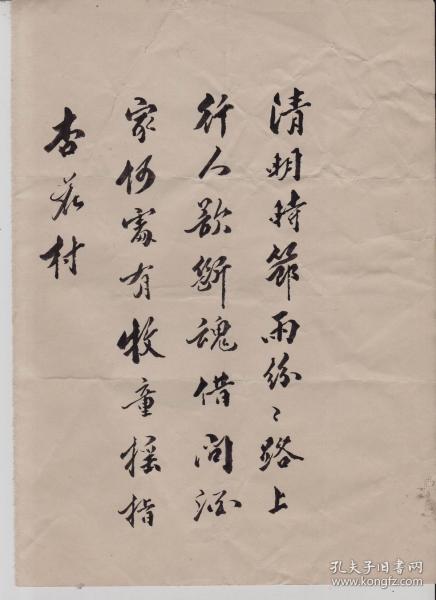 清明時節雨紛〻路上
行人欲斷魂借問酒
家何處有牧童摇指
杏花村
孔夫子旧书网
www.kongfz.com